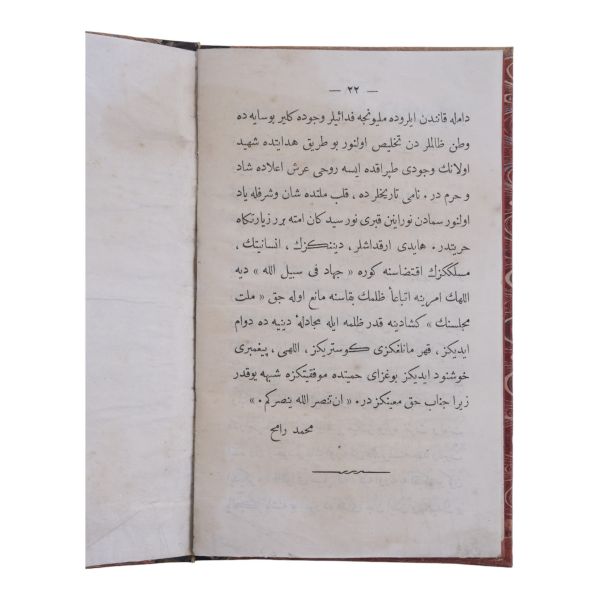 — ٢٢ —
دامله قانندن ایلروده ملیونجه فدائیلر وجوده کلیر بوسایه ده
وطن ظالملر دن تخلیص اولنور بو طریق هدایتده شهید
اولانك وجودی طپراقده ایسه روحی عرش اعلاده شاد
و خرم در . نامی تاریخلر ده ، قلب ملتده شان وشرفله یاد
اولنور سمادن نوراینن قبری نور سید کان امته برر زیارتکاه
حریتدر . هایدی ارقداشلر ، دیننکزك ، انسانیتك ،
مسلککزك اقتضاسنه کوره « جهاد فی سبیل الله » دیه
اللهك امرینه اتباعاً ظلمك بقاسنه مانع اوله جق « ملت
مجلسنك » کشادینه قدر ظلمه ایله مجادلهٔ دینیه ده دوام
ایدیکز ، قهر مانلغکزی کوستریکز ، اللهی ، پیغمبری
خوشنود ایدیکز بوغزای حمیتده موفقیتکزه شبهه یوقدر
زیرا جناب حق معینکز در . « ان تنصر الله ینصرکم . »
محمد رامح